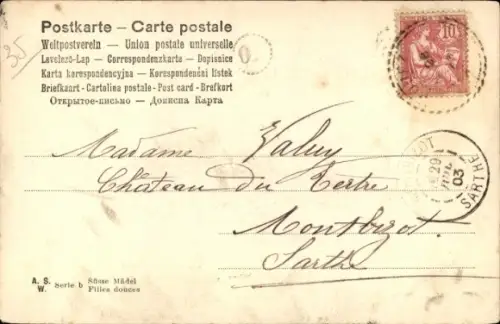 35
Postkarte – Carte postale
Weltpostverein — Union postale universelle
Levelező-Lap — Correspondenzkarte — Dopisnice
Karta korespondencyjna — Korespondenční lístek
Briefkaart - Cartolina postale - Post card - Brefkort
Открытое-письмо — Дописна Карта
O.
10
Madame Valuy
Château du Tertre
Montbizot
Sarthe
29
03
SARTHE
A. S. W. Serie b Süsse Mädel
Filles douces